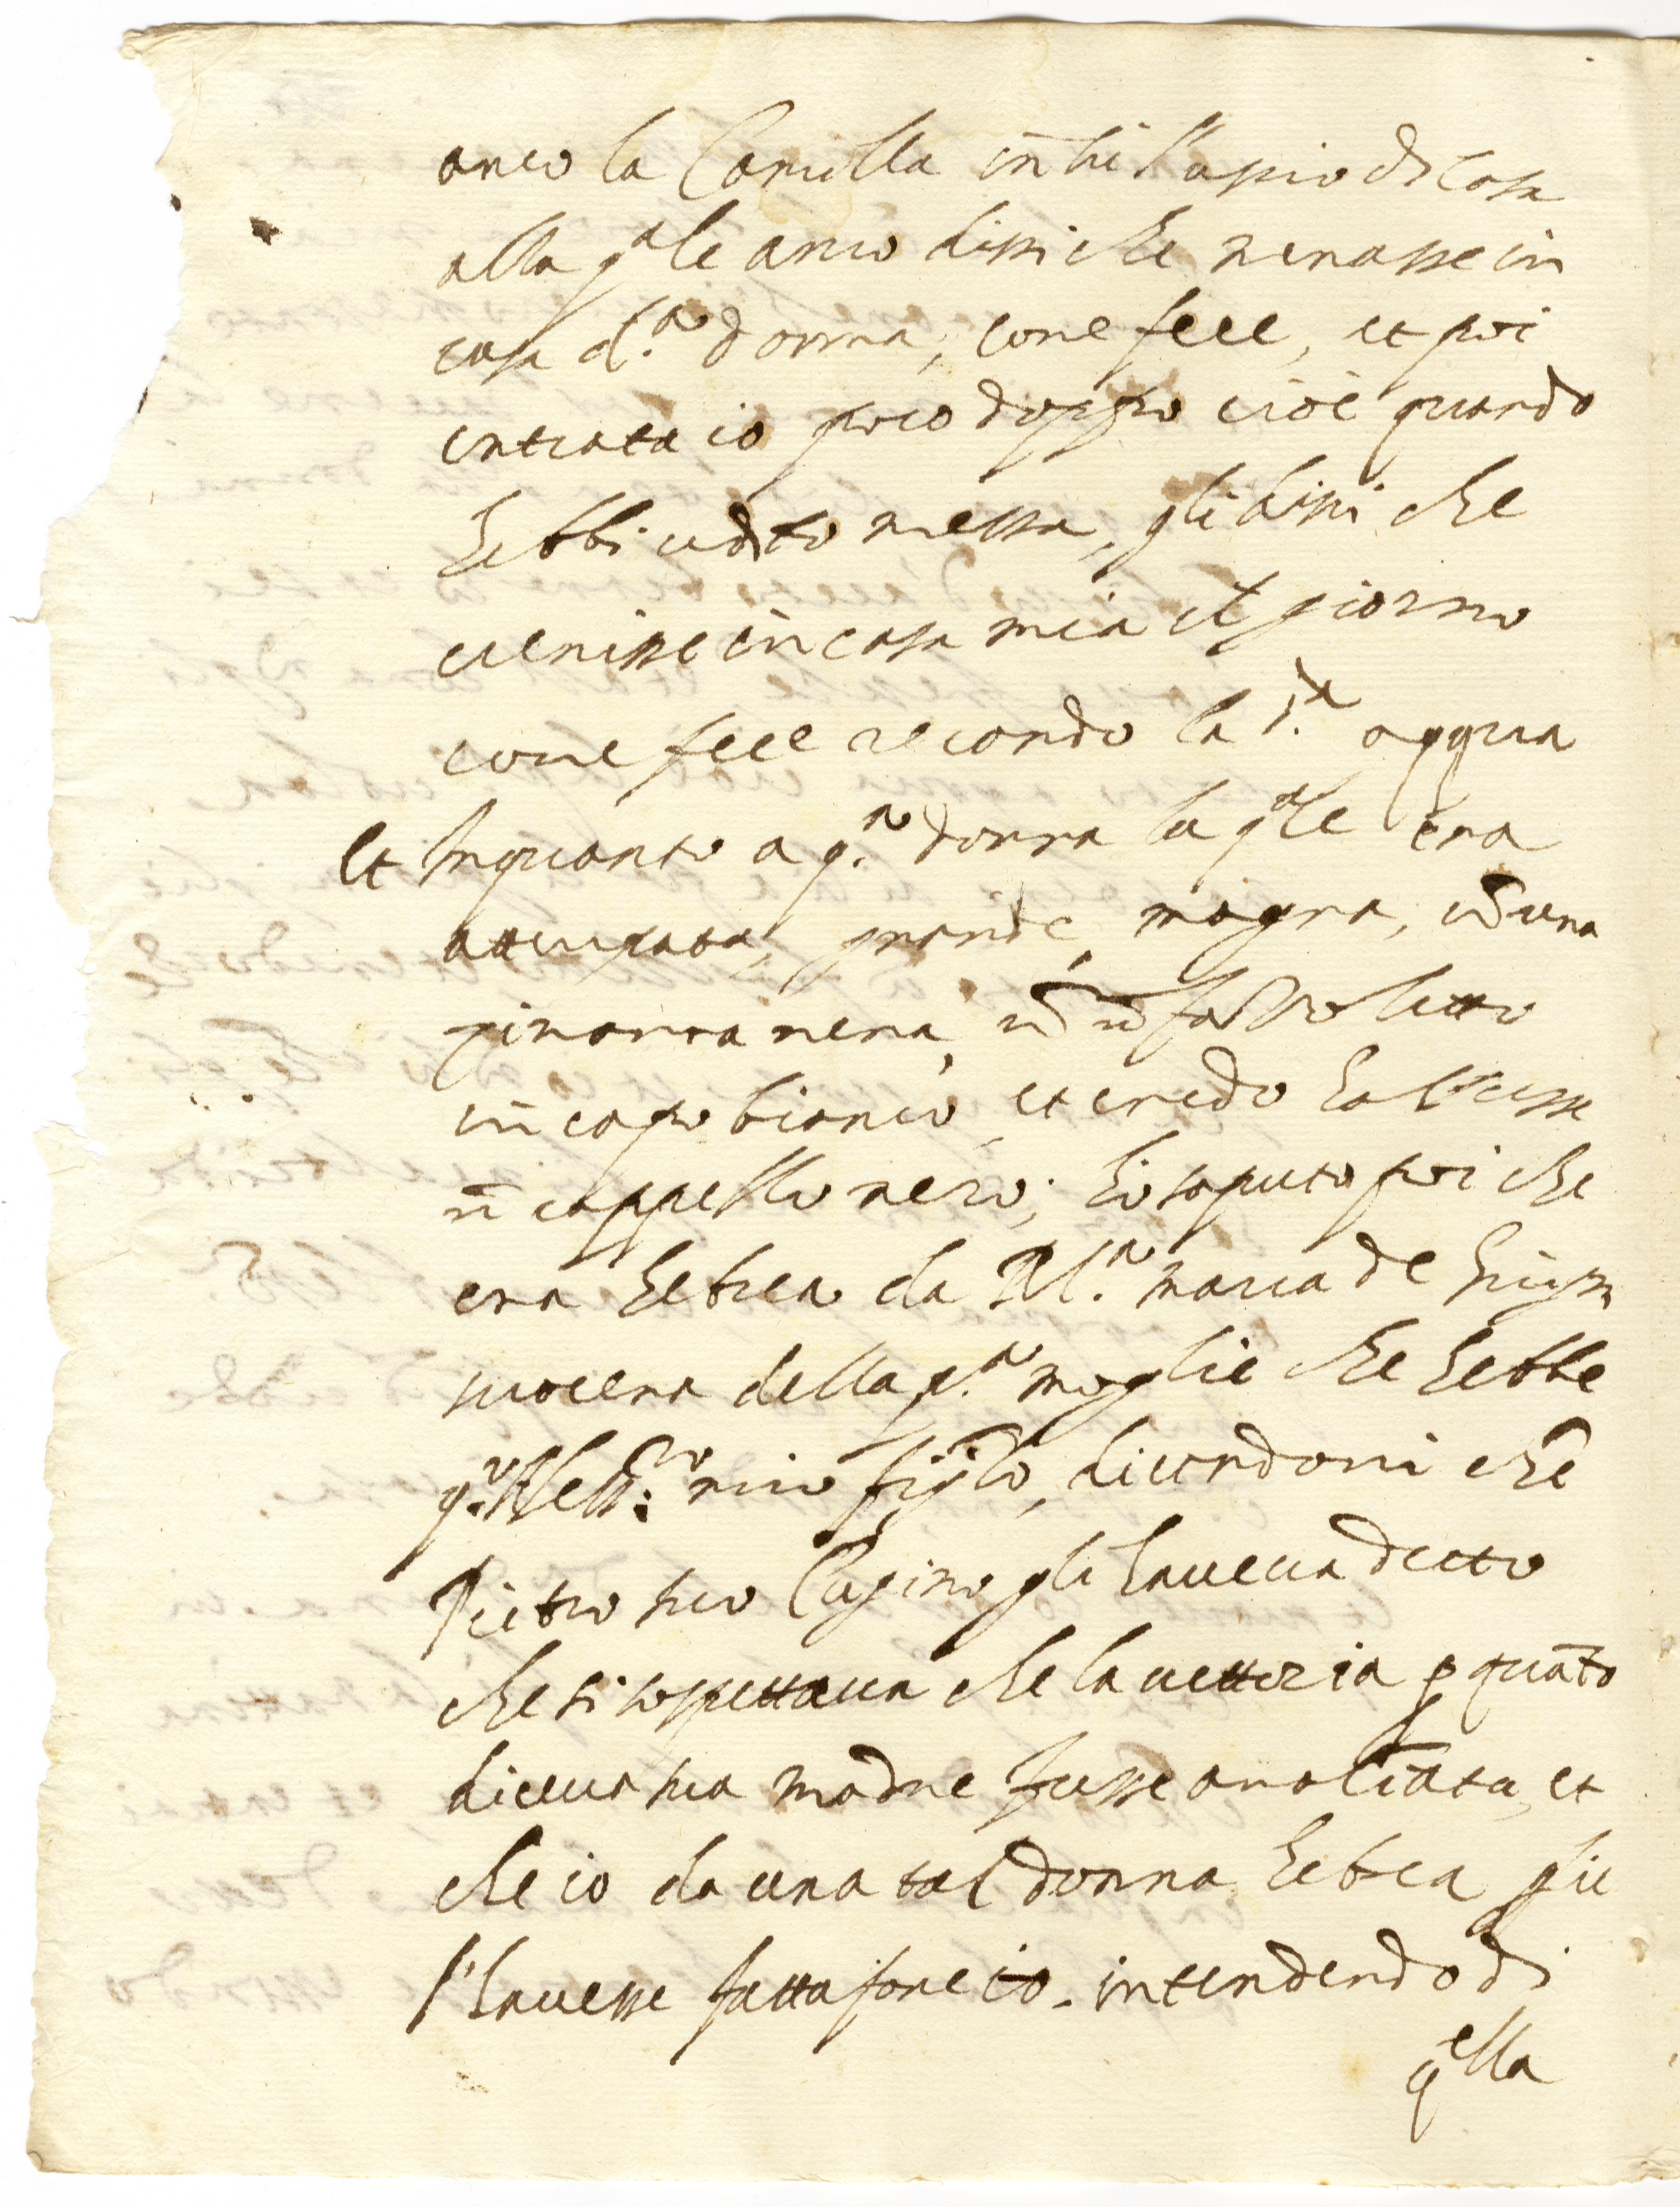 anco la Camilla in su l'uscio di casa
alla q.ale anco dissi che menasse in
casa d.a donna, come fece, et poi
entrata io poco doppo cioè quando
hebbi udito messa, gli dissi che
venisse in casa mia il giorno
come fece recando la s.ta acqua
Et Inquanto a q.a donna la q.ale era
attempata, grande, magra, cō una
zimarra nera, cō ū fazzoletto
in capo bianco, et credo havesse
ū cappello nero; hò saputo poi che
era hebrea da M.a Maria de
suocera della p.a moglie che hebbe
q.o Aless.ro mio figlio, dicendomi che
Pietro suo Cugino gli haveva detto
che si sospettava che la Vettoria p quāto
diceva sua madre fusse amaliata, et
che io da una tal donna hebrea gli
l'havesse fatta fare io. intendendo di
q.ella